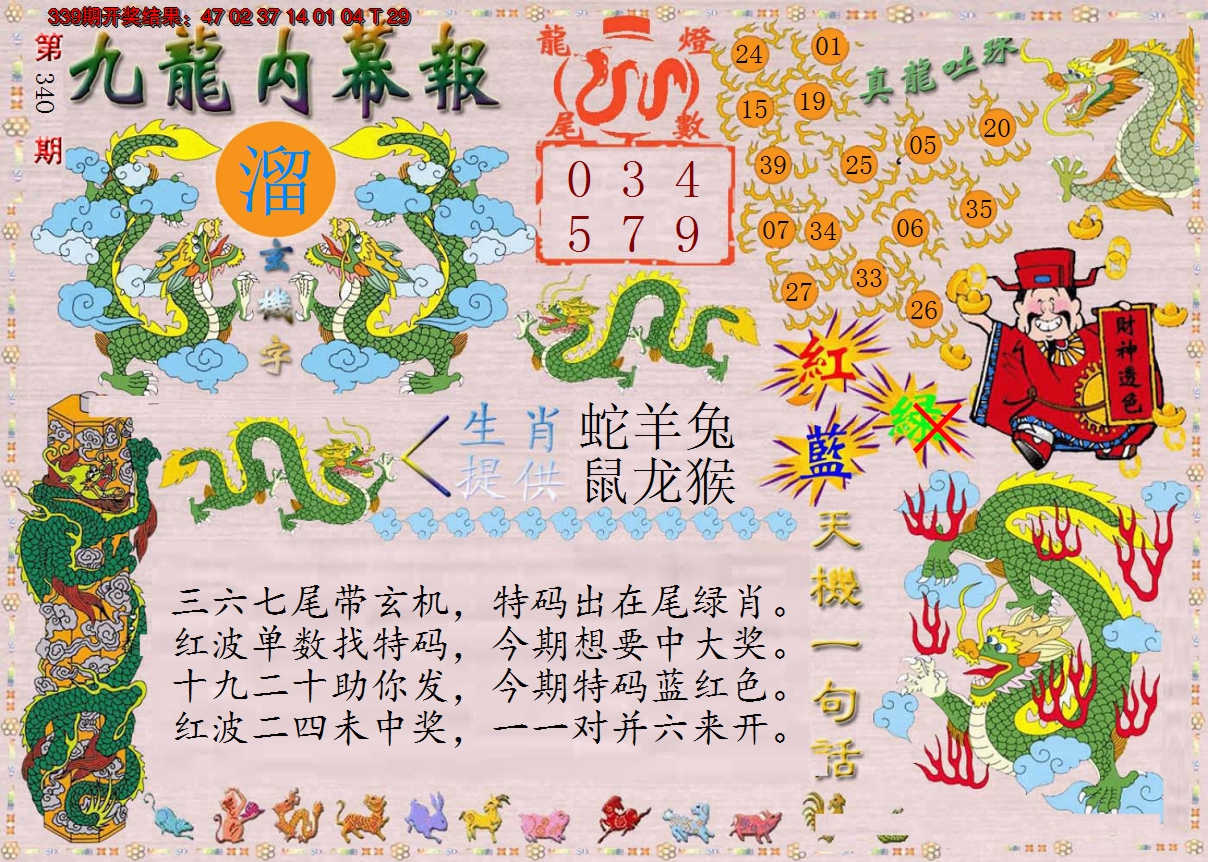 339期开奖结果：47 02 37 14 01 04 T 29
第340期
九龍内幕報
溜
玄機字
龍燈
尾數
0 3 4
5 7 9
真龍吐珠
24 01
15 19
39 25 05 20
07 34 06 35
27 33 26
紅
綠
藍
財神透色
生肖 蛇羊兔
提供 鼠龙猴
天機一句話
三六七尾带玄机，特码出在尾绿肖。
红波单数找特码，今期想要中大奖。
十九二十助你发，今期特码蓝红色。
红波二四未中奖，一一对并六来开。